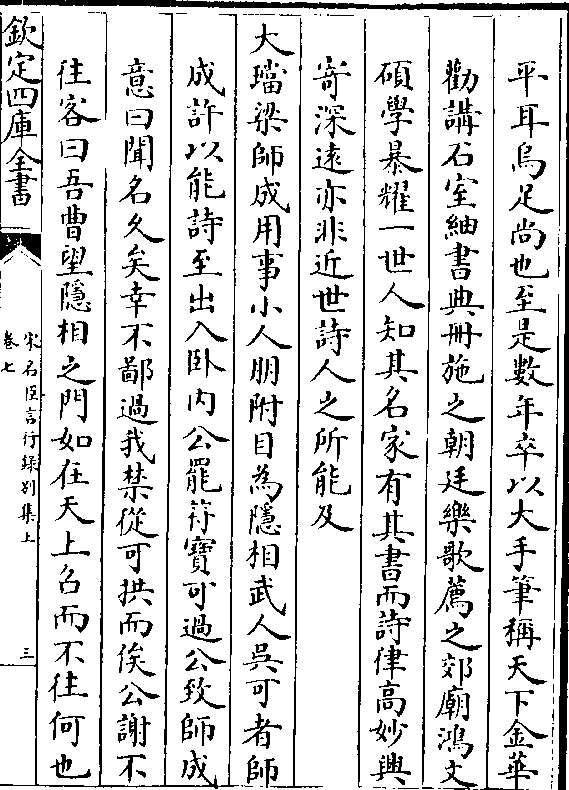 平耳烏足尚也至是數年卒以大手筆稱天下金華
勸講石室紬書典冊施之朝廷樂歌薦之郊廟鴻文
碩學暴耀一世人知其名家有其書而詩律高妙興
寄深遠亦非近世詩人之所能及
大璫梁師成用事小人朋附目為隱相武人吳可者師
成許以能詩至出入卧内公罷符寶可過公致師成
意曰聞名久矣幸不鄙過我禁從可拱而俟公謝不
往客曰吾曹望隱相之門如在天上召而不往何也
欽定四庫全書
宋名臣言行錄别集上
卷七
三